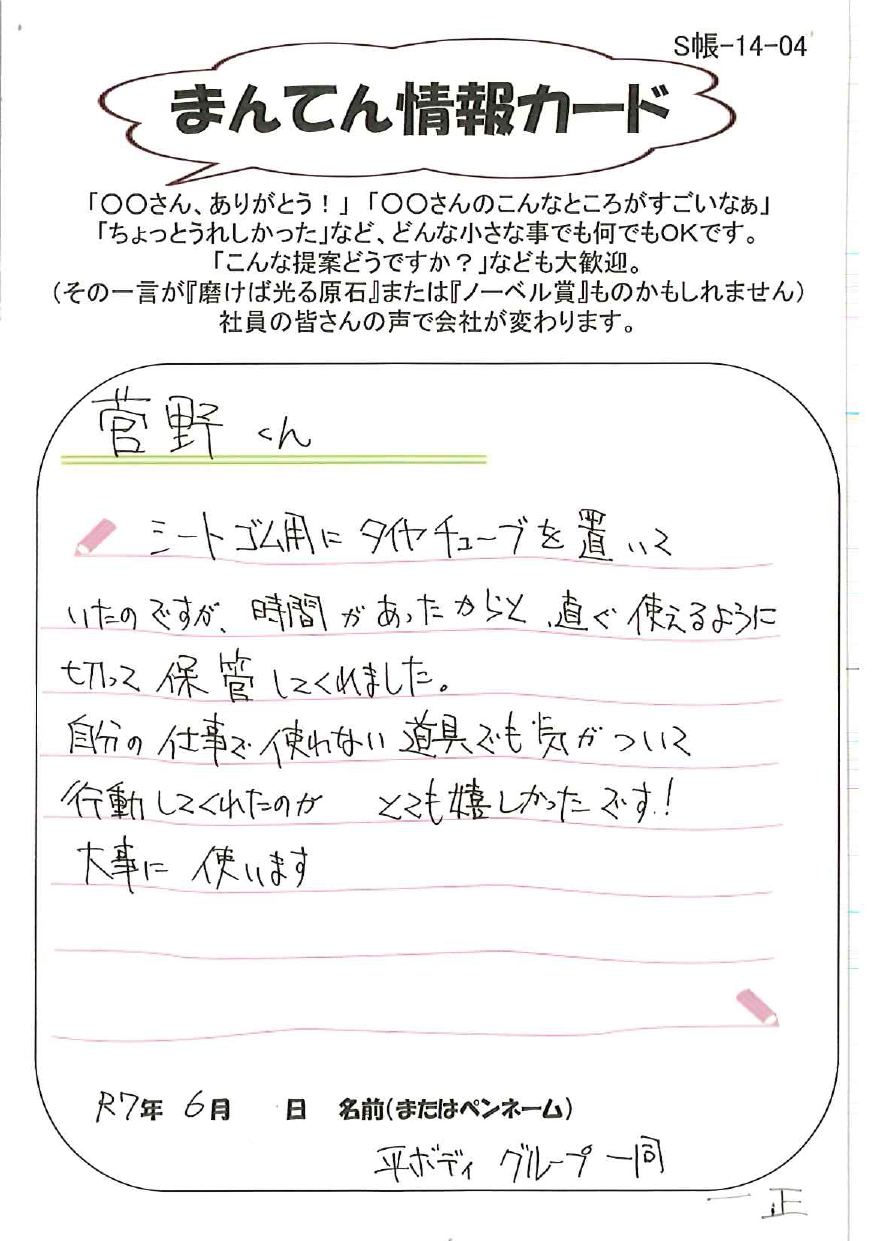 S帳-14-04
まんてん情報カード
「〇〇さん、ありがとう！」「〇〇さんのこんなところがすごいなぁ」
「ちょっとうれしかった」など、どんな小さな事でも何でもOKです。
「こんな提案どうですか？」なども大歓迎。
（その一言が『磨けば光る原石』または『ノーベル賞』ものかもしれません）
社員の皆さんの声で会社が変わります。
菅野くん
シートゴム用にタイヤチューブを置いて
いたのですが、時間があったからと、直ぐ使えるように
切って保管してくれました。
自分の仕事で使わない道具でも気がついて
行動してくれたのが とても嬉しかったです！
大事に使います
R7年 6月 日 名前（またはペンネーム）
平ボディ グループ一同
一正